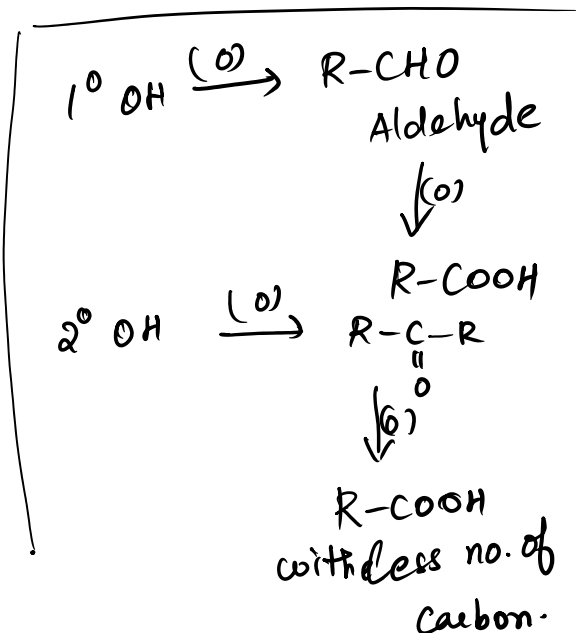 1° OH (O) → R-CHO
Aldehyde
↓ (O)
R-COOH
2° OH (O) → R-C-R
||
O
↓ (O)
R-COOH
with less no. of
carbon.